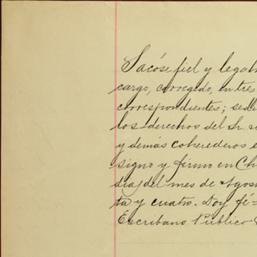 Sacóse fiel y legalm
cargo, corregido, en tres
correspondientes; sed
los derechos del Sr.
y demás coherederos e
signo y firmo en Ch
días del mes de Agos
ta y cuatro. Doy fé=
Escribano Público